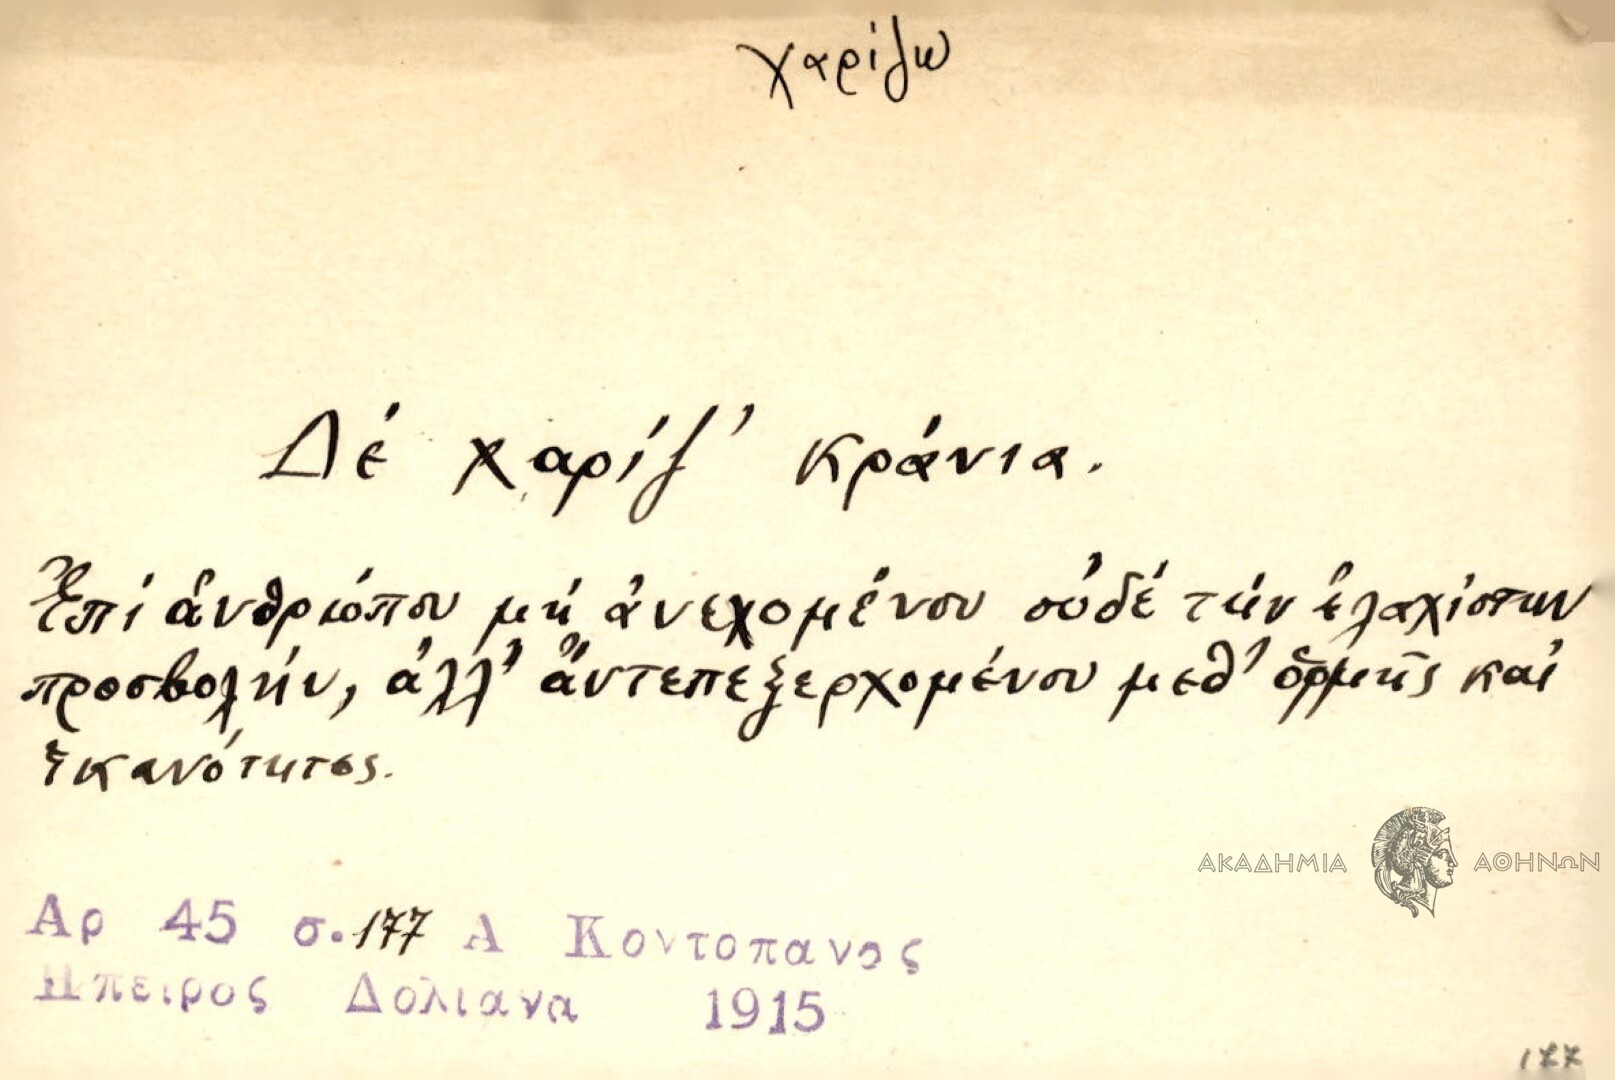 χαρίζω
Δέ χαρίζ' κράνια.
Ἐπί ἀνθρώπου μή ἀνεχομένου οὐδέ τήν ἐλαχίστην
προσβολήν, ἀλλ' ἀντεπεξερχομένου μεθ' ὁρμῆς καί
ἱκανότητος.
ΑΚΑΔΗΜΙΑ ΑΘΗΝΩΝ
Αρ 45 σ. 177 Α Κοντοπανος
Ηπειρος Δολιανα 1915
177